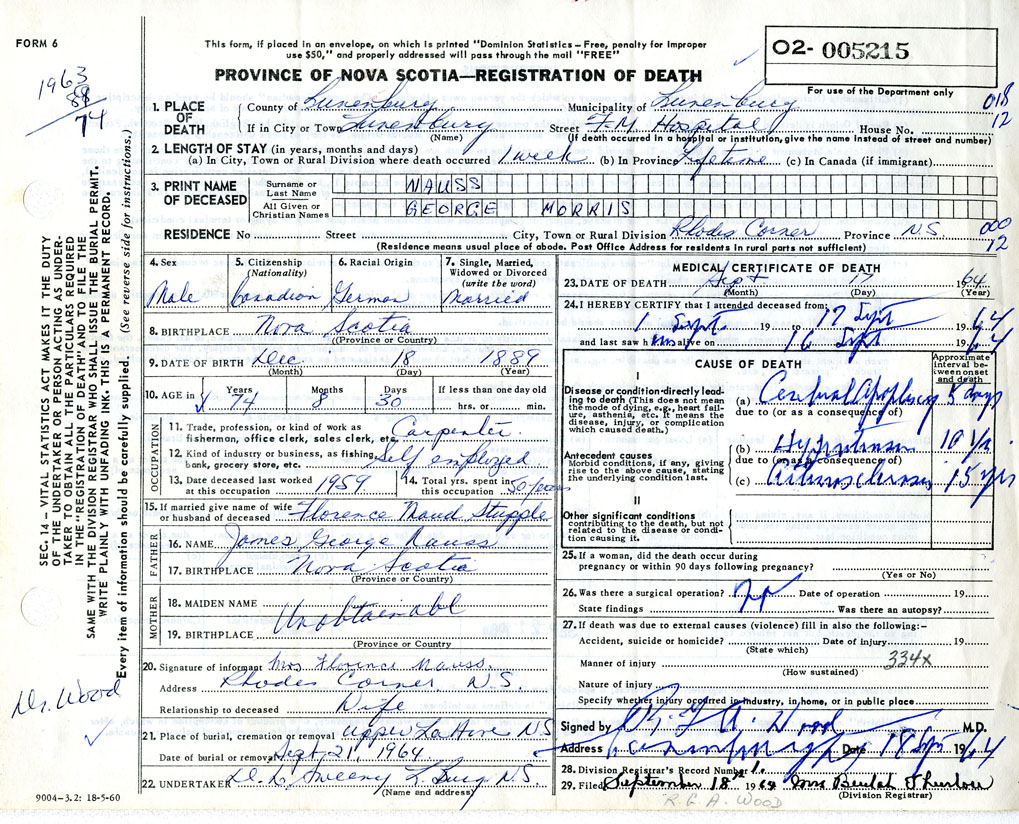 FORM 6
This form, if placed in an envelope, on which is printed "Dominion Statistics – Free, penalty for improper
use $50," and properly addressed will pass through the mail "FREE"
O2- 005215
For use of the Department only
PROVINCE OF NOVA SCOTIA—REGISTRATION OF DEATH
1963
88
74
018
12
1. PLACE OF DEATH County of Lunenburg Municipality of Lunenburg
If in City or Town Lunenburg Street F.M. Hospital House No.
(Name) (If death occurred in a hospital or institution, give the name instead of street and number)
2. LENGTH OF STAY (in years, months and days)
(a) In City, Town or Rural Division where death occurred 1 week (b) In Province Lifetime (c) In Canada (if immigrant)
3. PRINT NAME OF DECEASED Surname or Last Name NAUSS
All Given or Christian Names GEORGE MORRIS
RESIDENCE No Street City, Town or Rural Division Rhodes Corner Province N.S.
000
12
(Residence means usual place of abode. Post Office Address for residents in rural parts not sufficient)
SEC. 14 – VITAL STATISTICS ACT MAKES IT THE DUTY
OF THE UNDERTAKER OR PERSON ACTING AS UNDER-
TAKER TO OBTAIN ALL THE PARTICULARS REQUIRED
IN THE "REGISTRATION OF DEATH" AND TO FILE THE
SAME WITH THE DIVISION REGISTRAR WHO SHALL ISSUE THE BURIAL PERMIT.
WRITE PLAINLY WITH UNFADING INK. THIS IS A PERMANENT RECORD.
Every item of information should be carefully supplied. (See reverse side for instructions.)
4. Sex Male
5. Citizenship (Nationality) Canadian
6. Racial Origin German
7. Single, Married, Widowed or Divorced (write the word) Married
8. BIRTHPLACE Nova Scotia
(Province or Country)
9. DATE OF BIRTH Dec 18 1889
(Month) (Day) (Year)
10. AGE in Years 74 Months 8 Days 30 If less than one day old
hrs. or min.
OCCUPATION
11. Trade, profession, or kind of work as
fisherman, office clerk, sales clerk, etc. Carpenter
12. Kind of industry or business, as fishing,
bank, grocery store, etc. Self employed
13. Date deceased last worked at this occupation 1959
14. Total yrs. spent in this occupation 50 years
15. If married give name of wife
or husband of deceased Florence Maud Stupple
FATHER
16. NAME James George Nauss
17. BIRTHPLACE Nova Scotia
(Province or Country)
MOTHER
18. MAIDEN NAME Unobtainabl
19. BIRTHPLACE
(Province or Country)
20. Signature of informant Mrs Florence Nauss.
Address Rhodes Corner N.S.
Relationship to deceased Wife
Dr. Wood
21. Place of burial, cremation or removal Upper La Have NS
Date of burial or removal Sept. 21, 1964
22. UNDERTAKER Sweeny L'Burg N.S.
(Name and address)
9004–3.2: 18-5-60
MEDICAL CERTIFICATE OF DEATH
23. DATE OF DEATH Sept 17 1964
(Month) (Day) (Year)
24. I HEREBY CERTIFY that I attended deceased from:
1 Sept 19 to 17 Sept 1964
and last saw him alive on 16 Sept 1964
CAUSE OF DEATH
Approximate interval between onset and death
I
Disease or condition directly lead-
ing to death (This does not mean
the mode of dying, e.g., heart fail-
ure, asthenia, etc. It means the
disease, injury, or complication
which caused death.)
(a) Cerebral Apoplexy 5 days
due to (or as a consequence of)
Antecedent causes
Morbid conditions, if any, giving
rise to the above cause, stating
the underlying condition last.
(b) Hypertension 10
due to (or as a consequence of)
(c) Arteriosclerosis 15 yrs
II
Other significant conditions
contributing to the death, but not
related to the disease or condi-
tion causing it.
25. If a woman, did the death occur during
pregnancy or within 90 days following pregnancy?
(Yes or No)
26. Was there a surgical operation? Date of operation 19
State findings Was there an autopsy?
27. If death was due to external causes (violence) fill in also the following:-
Accident, suicide or homicide? Date of injury 19
(State which)
Manner of injury 334x
(How sustained)
Nature of injury
Specify whether injury occurred in industry, in home, or in public place
Signed by R. G. A. Wood M.D.
Address Lunenburg Date 18 Sept 1964
28. Division Registrar's Record Number
29. Filed September 18th 1964 Mrs
(Division Registrar)
R.G.A. WOOD